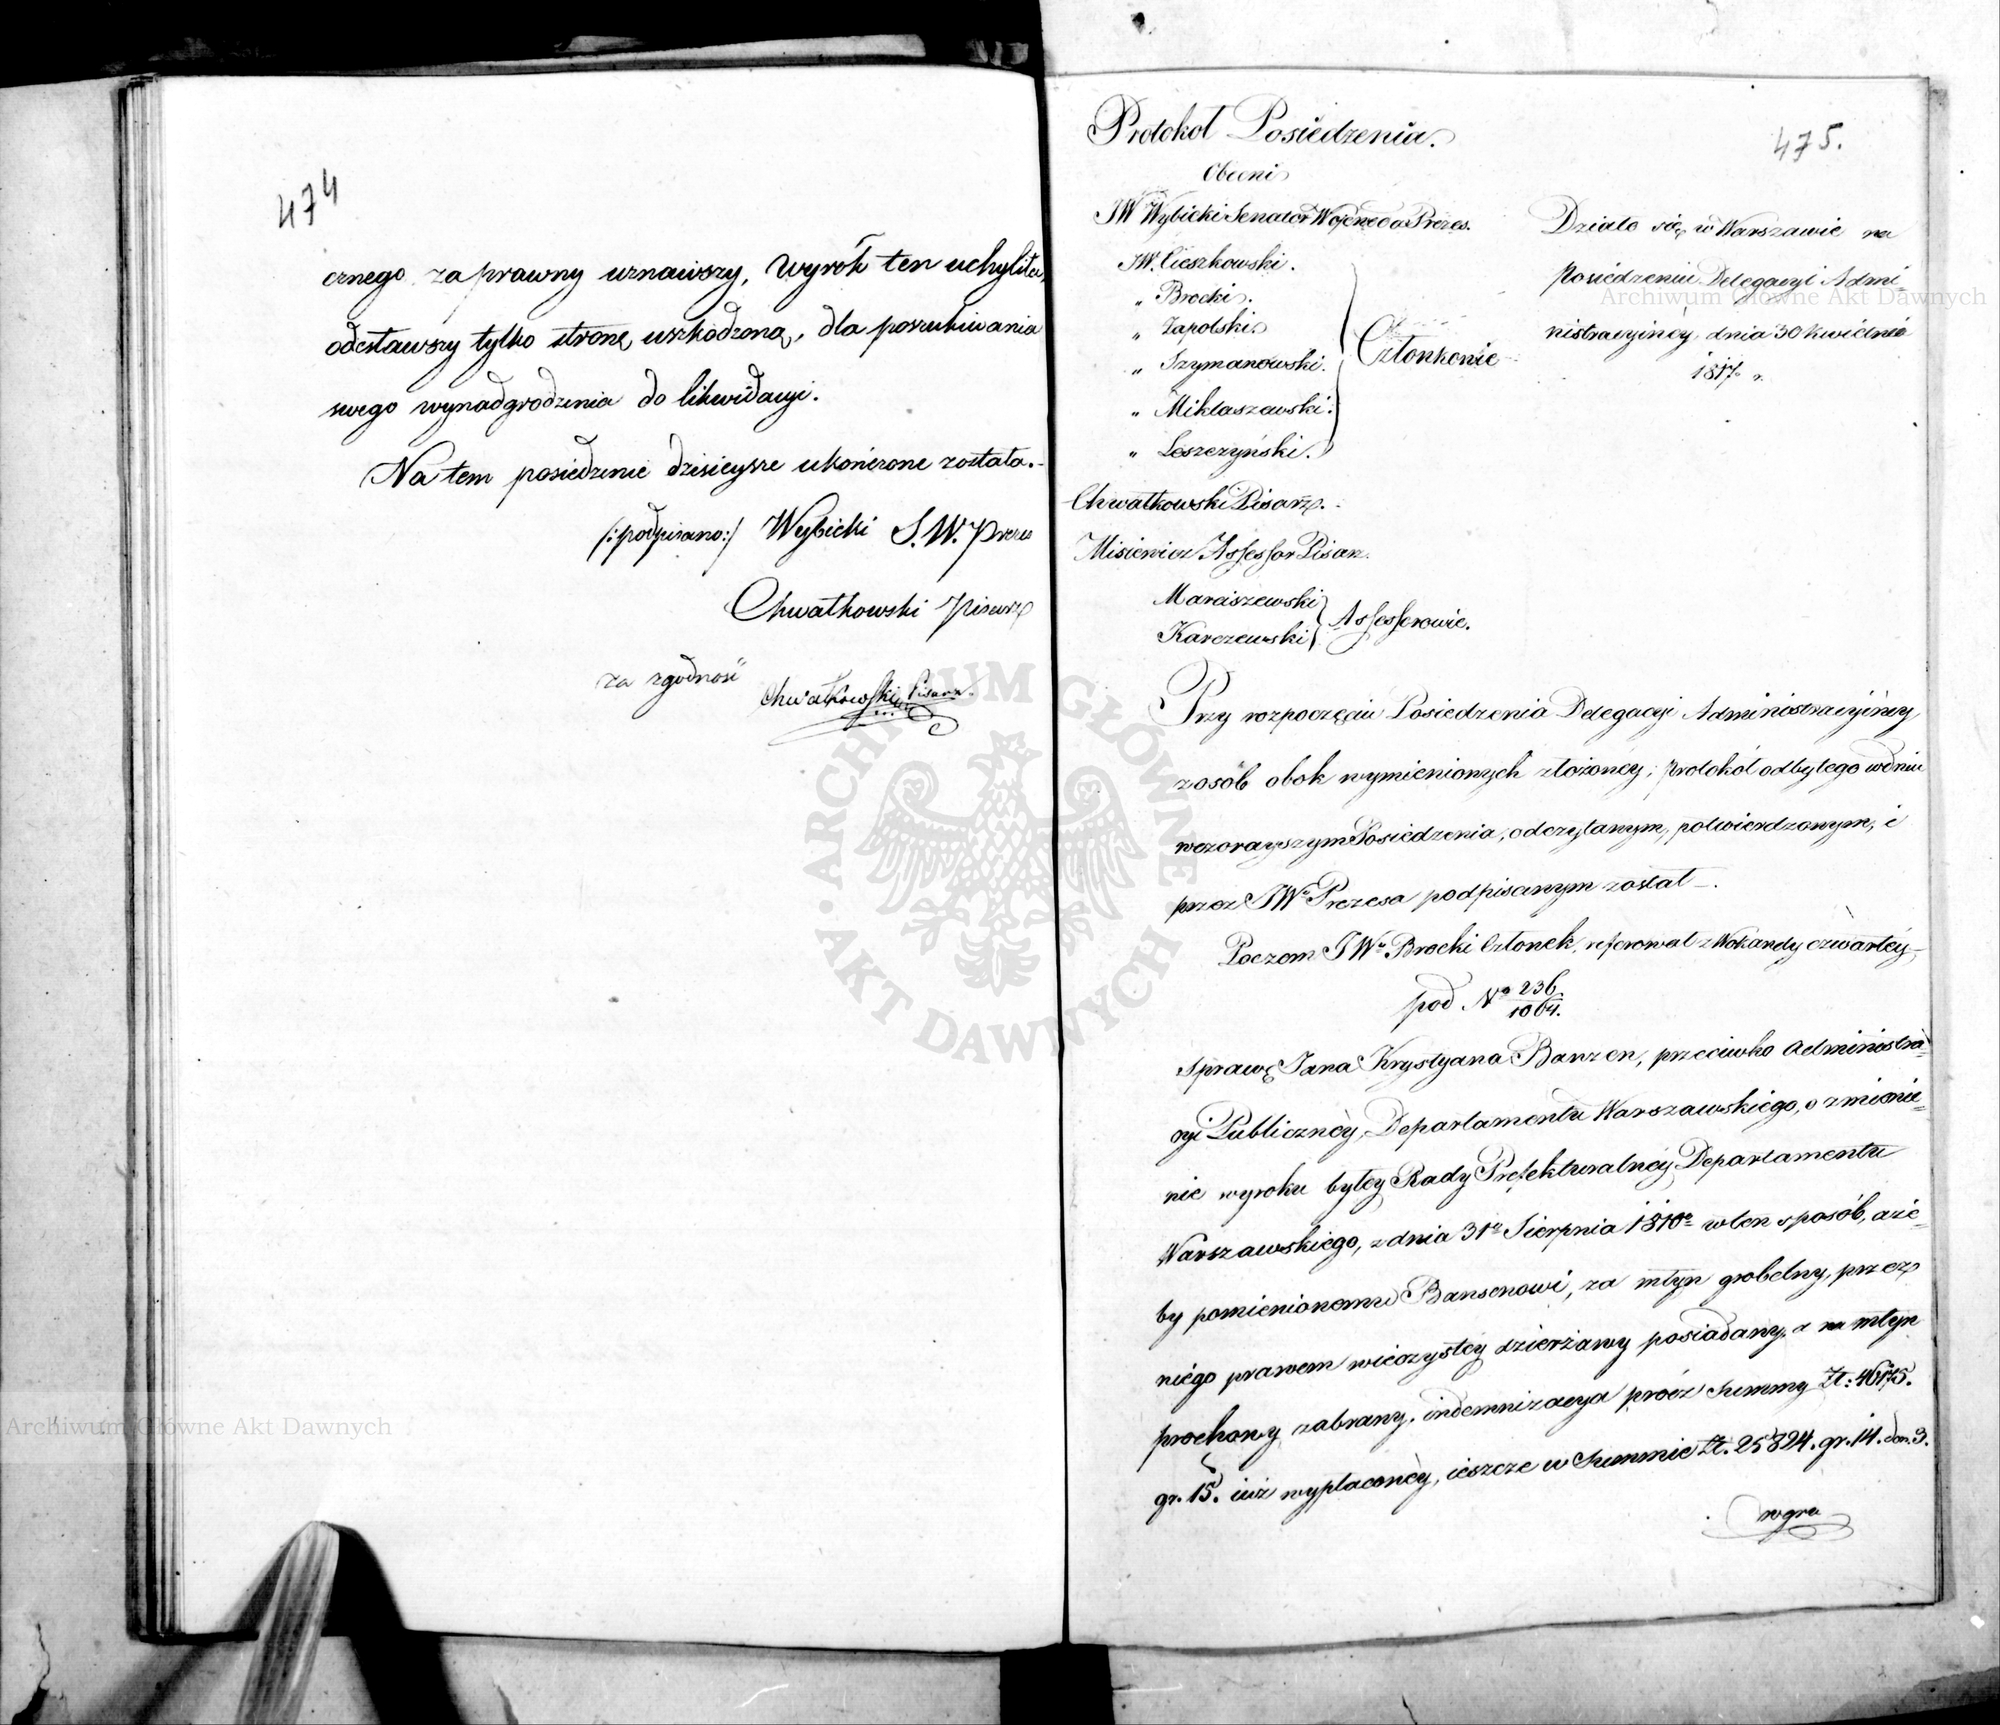 474
cznego za prawny uznawszy, Wyrok ten uchyliła,
odesławszy tylko stronę uszkodzoną, dla poszukiwania
swego wynadgrodzenia do likwidacyi.
Na tem posiedzenie dzisieysze ukończone zostało.
/:podpisano:/ Wybicki S.W. Prezes
Chwałkowski Pisarz
za zgodność Chwałkowski Pisarz.
475.
Protokół Posiedzenia.
Obecni
JW Wybicki Senator Wojewoda Prezes.
JW. Cieszkowski.
„ Brocki.
„ Zapolski
„ Szymanowski.
„ Mikłaszewski.
„ Leszczyński.
Członkowie
Chwałkowski Pisarz.
Misiewicz Assessor Pisarz.
Marciszewski
Karczewski
Assessorowie.
Działo się w Warszawie na
Posiedzeniu Delegacyi Admi=
nistracyinéy, dnia 30 kwietnia
1817 r.
Przy rozpoczęciu Posiedzenia Delegacyi Administracyinéy
z osób obok wymienionych złożonéy; protokół odbytego w dniu
wczorayszym Posiedzenia, odczytanym, potwierdzonym, i
przez JWo Prezesa podpisanym został.
Poczem JWy Brocki Członek, referował z Wokandy czwartéy
pod No 236/1064.
Sprawę Jana Krystyana Banzen, przeciwko Administra=
cyi Publicznéy, Departamentu Warszawskiego, o zmienie=
nie wyroku byłey Rady Prefekturalnéy Departamentu
Warszawskiego, z dnia 31o Sierpnia 1810o w ten sposób, aże=
by pomienionemu Bansenowi, za młyn grobelny, przez
niego prawem wieczystey dzierżawy posiadany, a na młyn
prochowy zabrany, indemnizacya prócz Summy Zł: 4675.
gr. 15. iuż wypłaconéy, ieszcze w Summie Zł. 25824. gr. 14. den. 3.
wgra
Archiwum Główne Akt Dawnych
Archiwum Główne Akt Dawnych
ARCHIWUM GŁÓWNE • AKT DAWNYCH •